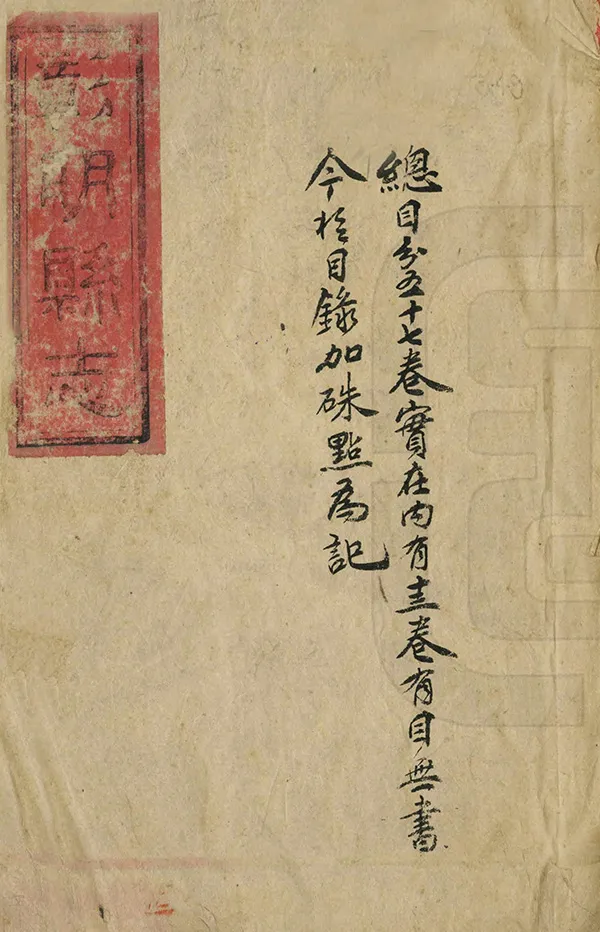 總目分五十七卷實在內有十三卷有目無書
今扵目錄加硃點為記
彰明縣志